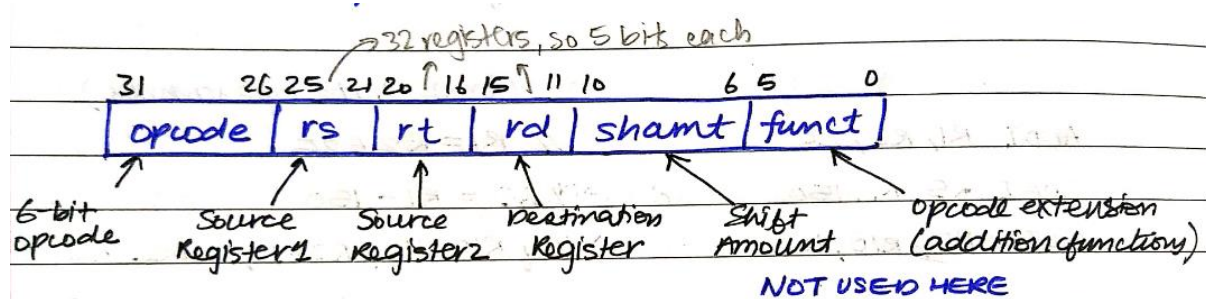 32 registers, so 5 bits each
31 26 25 21 20 16 15 11 10 6 5 0
opcode rs rt rd shamt funct
6-bit opcode
Source Register1
Source Register2
Destination Register
Shift Amount
opcode extension (addition functions)
NOT USED HERE